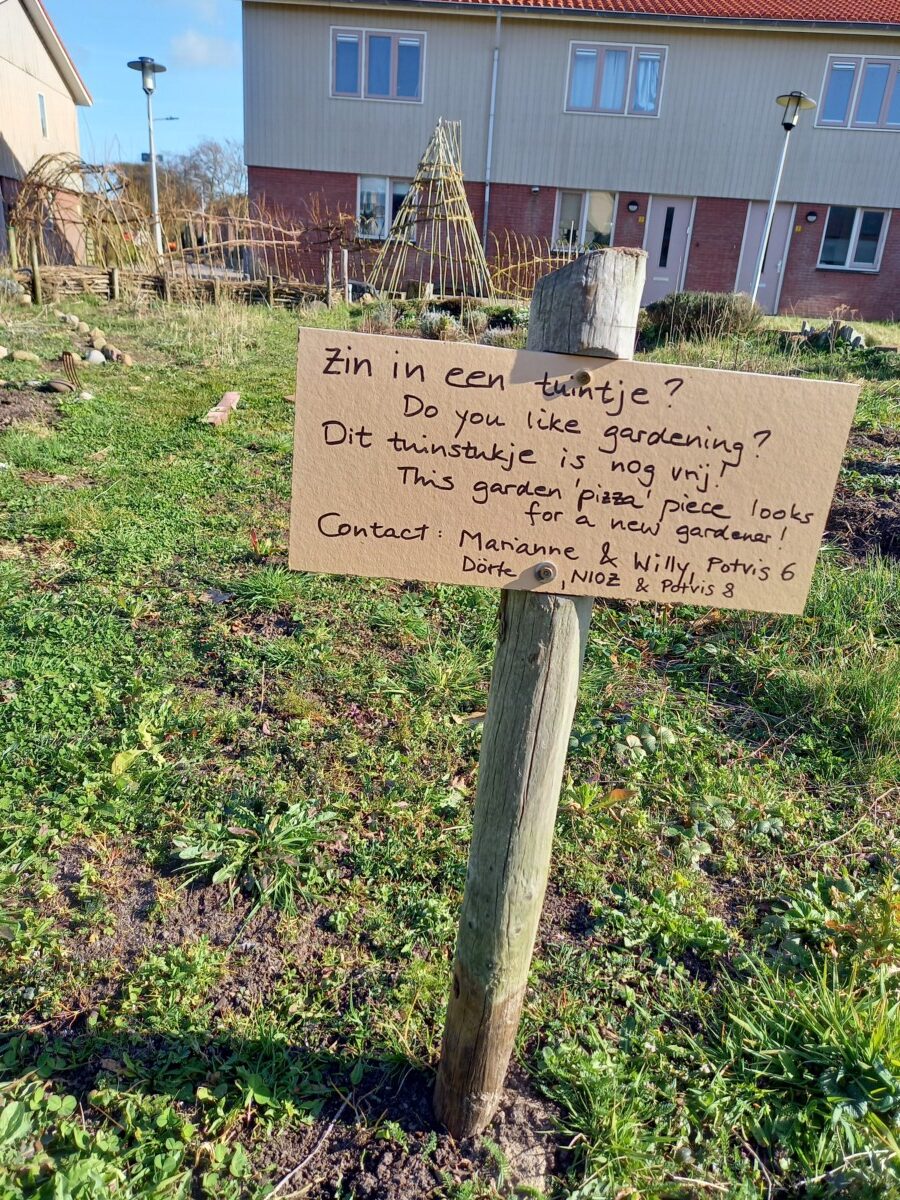 Zin in een tuintje?
Do you like gardening?
Dit tuinstukje is nog vrij!
This garden 'pizza' piece looks
for a new gardener!
Contact: Marianne & Willy, Potvis 6
Dörte, NIOZ & Potvis 8